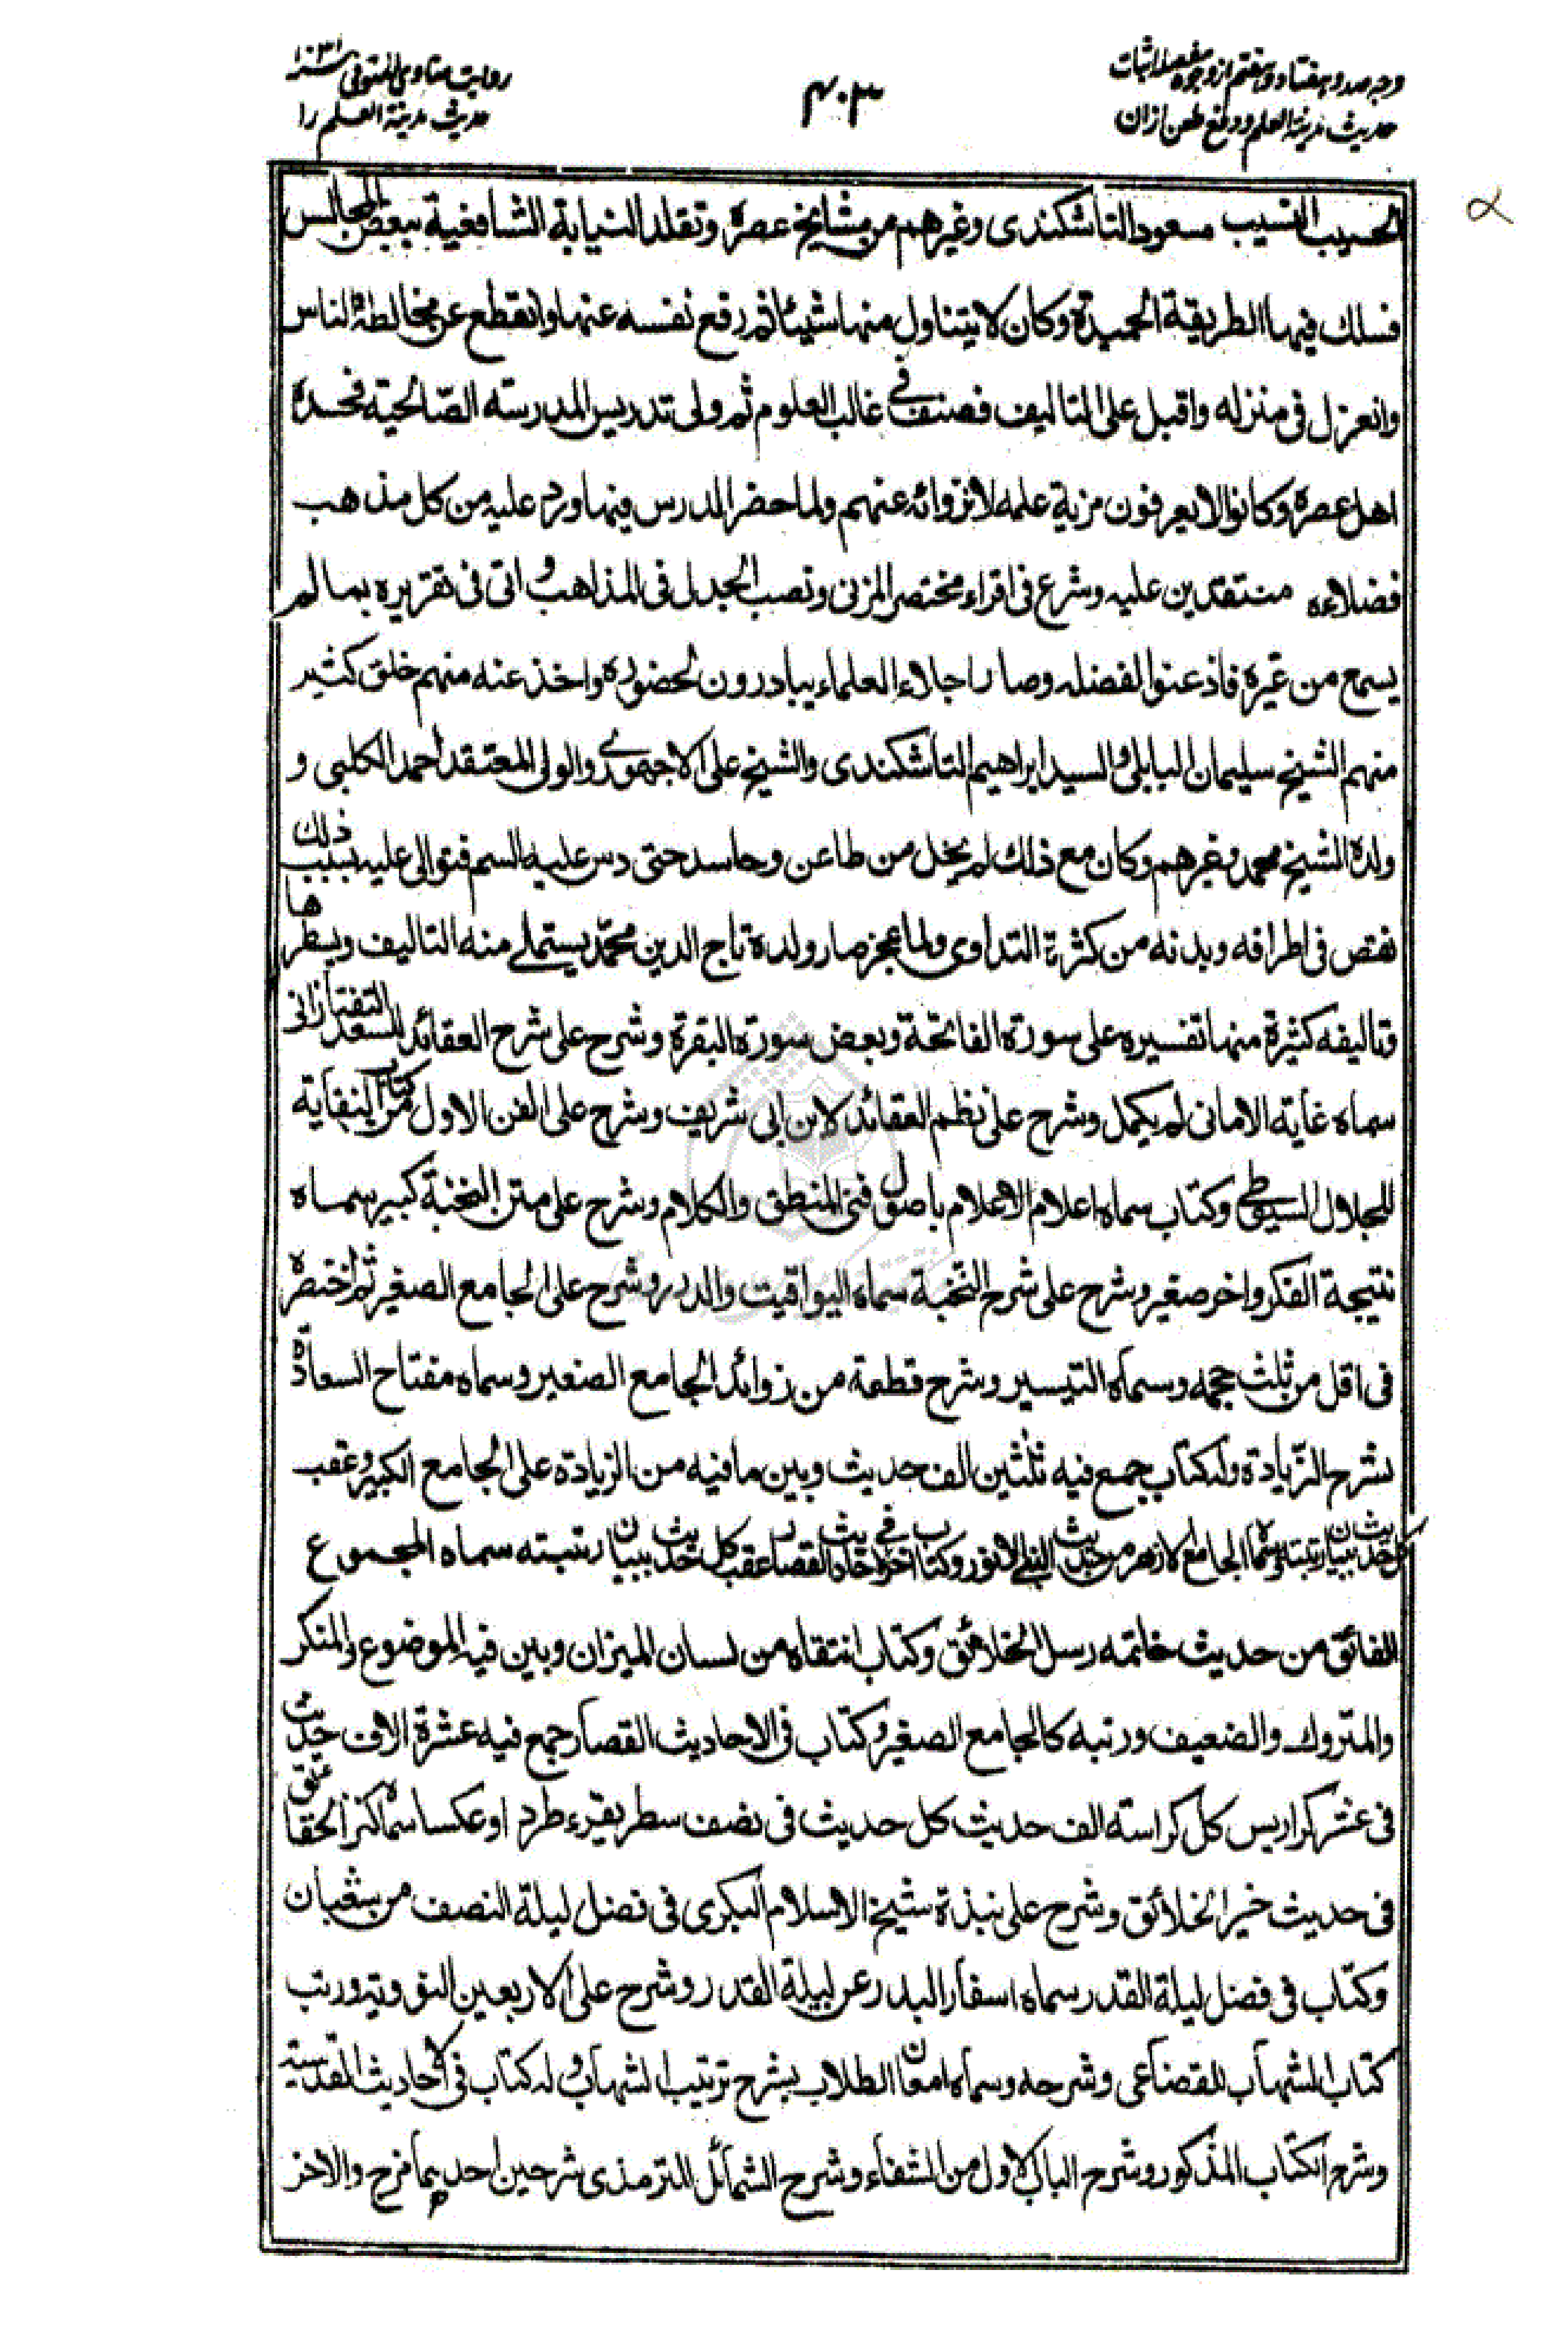 وجه صد و هفتاد و هفتم از وجوه مفصله اثبات
حدیث مدینة العلم و دفع طعن ازان
۴۰۳
روایت مناوی المتوفی سنه ۱۰۳۱
حدیث مدینة العلم را
الحسیب النسیب مسعود التاشکندی وغیرهم من مشایخ عصره وتقلد النیابة الشافعیة ببعض المجالس
فسلك فیها الطریقة الحمیدة وکان لا یتناول منها شیئا ثم رفع نفسه عنها وانقطع عن مخالطة الناس
وانعزل فی منزله واقبل علی التالیف فصنف فی غالب العلوم ثم ولی تدریس المدرسته الصّالحیة فحسده
اهل عصره وکانوا لا یعرفون مزیة علمه لانزوائه عنهم ولما حضر الدرس فیها ورد علیه من کل مذهب
فضلاءه منتقدین علیه وشرع فی اقراء مختصر المزنی ونصب الجدل فی المذاهب واتی فی تقریره بما لم
یسمع من غیره فاذعنوا لفضله وصار اجلاء العلماء یبادرون لحضوره واخذ عنه منهم خلق کثیر
منهم الشیخ سلیمان البابلی والسید ابراهیم التاشکندی والشیخ علی الاجهوری والولی المعتقد احمد الکلبی و
ولده الشیخ محمد وغیرهم وکان مع ذلك لم یخل من طاعن وحاسد حتی دس علیه السم فتوالی علیه بسبب ذلك
نقص فی اطرافه وبدنه من کثرة التداوی ولما عجز صار ولده تاج الدین محمّد یستملی منه التالیف ویسطرها
وتالیفه کثیرة منها تفسیره علی سورة الفاتحة وبعض سورة البقرة وشرح علی شرح العقائد للسعد التفتازانی
سماه غایة الامانی لم یکمل وشرح علی نظم العقائد لابن ابی شریف وشرح علی الفن الاول من کتاب النقایة
للجلال السیوطی وکتاب سماه اعلام الاعلام باصول فنی المنطق والکلام وشرح علی متن النخبة کبیر سماه
نتیجة الفکر واخر صغیر وشرح علی شرح النخبة سماه الیواقیت والدرر وشرح علی الجامع الصغیر ثم اختصره
فی اقل من ثلث حجمه وسماه التیسیر وشرح قطعة من زوائد الجامع الصغیر وسماه مفتاح السعادة
بشرح الزّیادة وله کتاب جمع فیه ثلثین الف حدیث وبین ما فیه من الزیادة علی الجامع الکبیر وعقب
کل حدیث ببیان رتبته وسماه الجامع الازهر من حدیث النبی الانور وکتاب اخر فی حادیث القصار عقب کل حدیث ببیان رتبته سماه المجموع
الفائق من حدیث خاتمه رسل الخلائق وکتاب انتقاه من لسان المیزان وبین فیه الموضوع والمنکر
والمتروك والضعیف ورتبه کالجامع الصغیر وکتاب فی الاحادیث القصار جمع فیه عشرة الاف حدیث
فی عشر کراریس کل کراسته الف حدیث کل حدیث فی نصف سطر یقرء طرد او عکسا سماه کنز الحقائق
فی حدیث خیر الخلائق وشرح علی نبذة شیخ الاسلام البکری فی فضل لیلة النصف من شعبان
وکتاب فی فضل لیلة القدر سماه اسفار البدر عن لیلة القدر وشرح علی الاربعین النوویة ورتب
کتاب الشهاب للقضاعی وشرحه وسماه امعان الطلاب بشرح ترتیب الشهاب وله کتاب فی الاحادیث القدسیة
وشرح الکتاب المذکور وشرح الباب الاول من الشفاء وشرح الشمائل للترمذی شرحین احدهما مزج والاخر